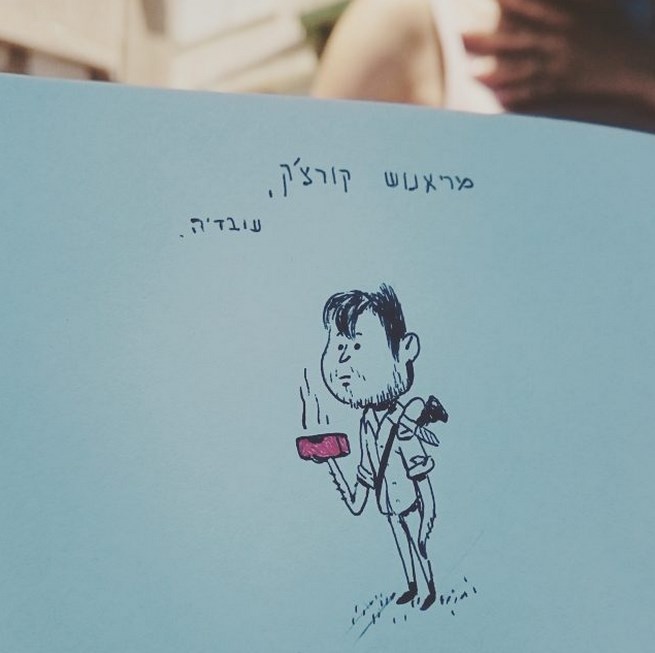 מריאנוש קורצ'ק,
עובדיה.